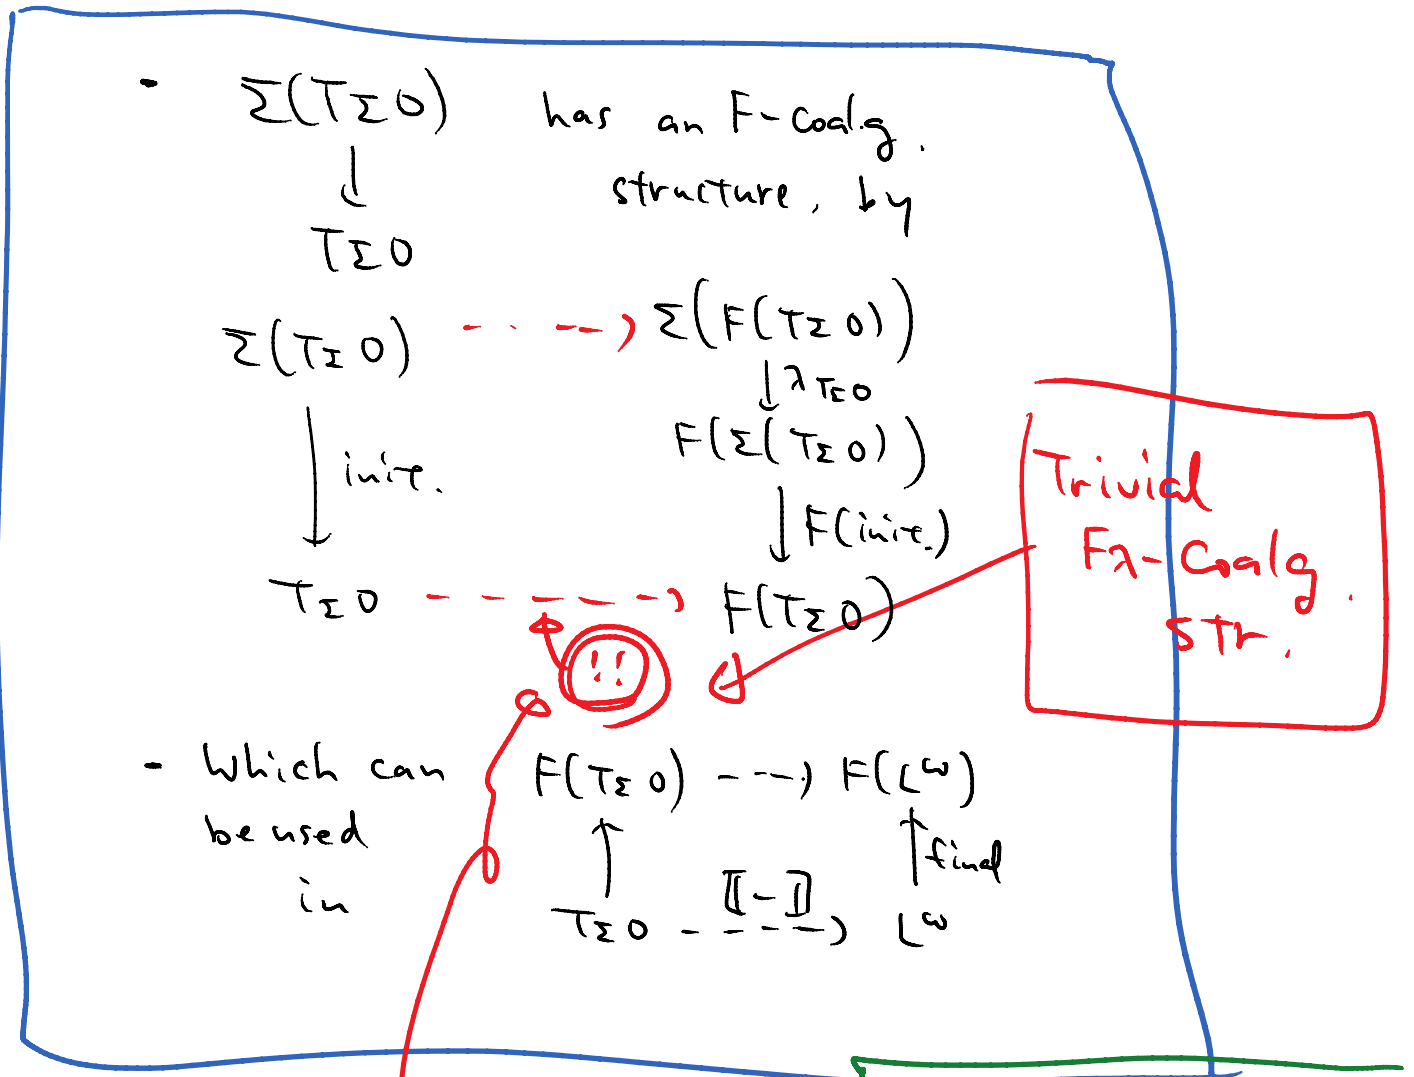 - Σ(TΣ0) has an F-coalg.
↓ structure, by
TΣ0
Σ(TΣ0) - - - -> Σ(F(TΣ0))
↓ λ TΣ0
F(Σ(TΣ0))
↓ init. ↓ F(init.)
TΣ0 - - - - -> F(TΣ0)
!!
Trivial
Fλ-Coalg.
str.
- Which can F(TΣ0) - - -> F(L^ω)
be used ↑ ↑ final
in ⟦-⟧
TΣ0 - - - -> L^ω